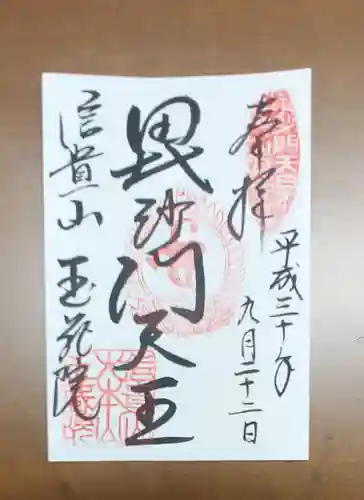 奉拝
平成三十年
九月二十二日
毘沙門天王
信貴山 玉蔵院